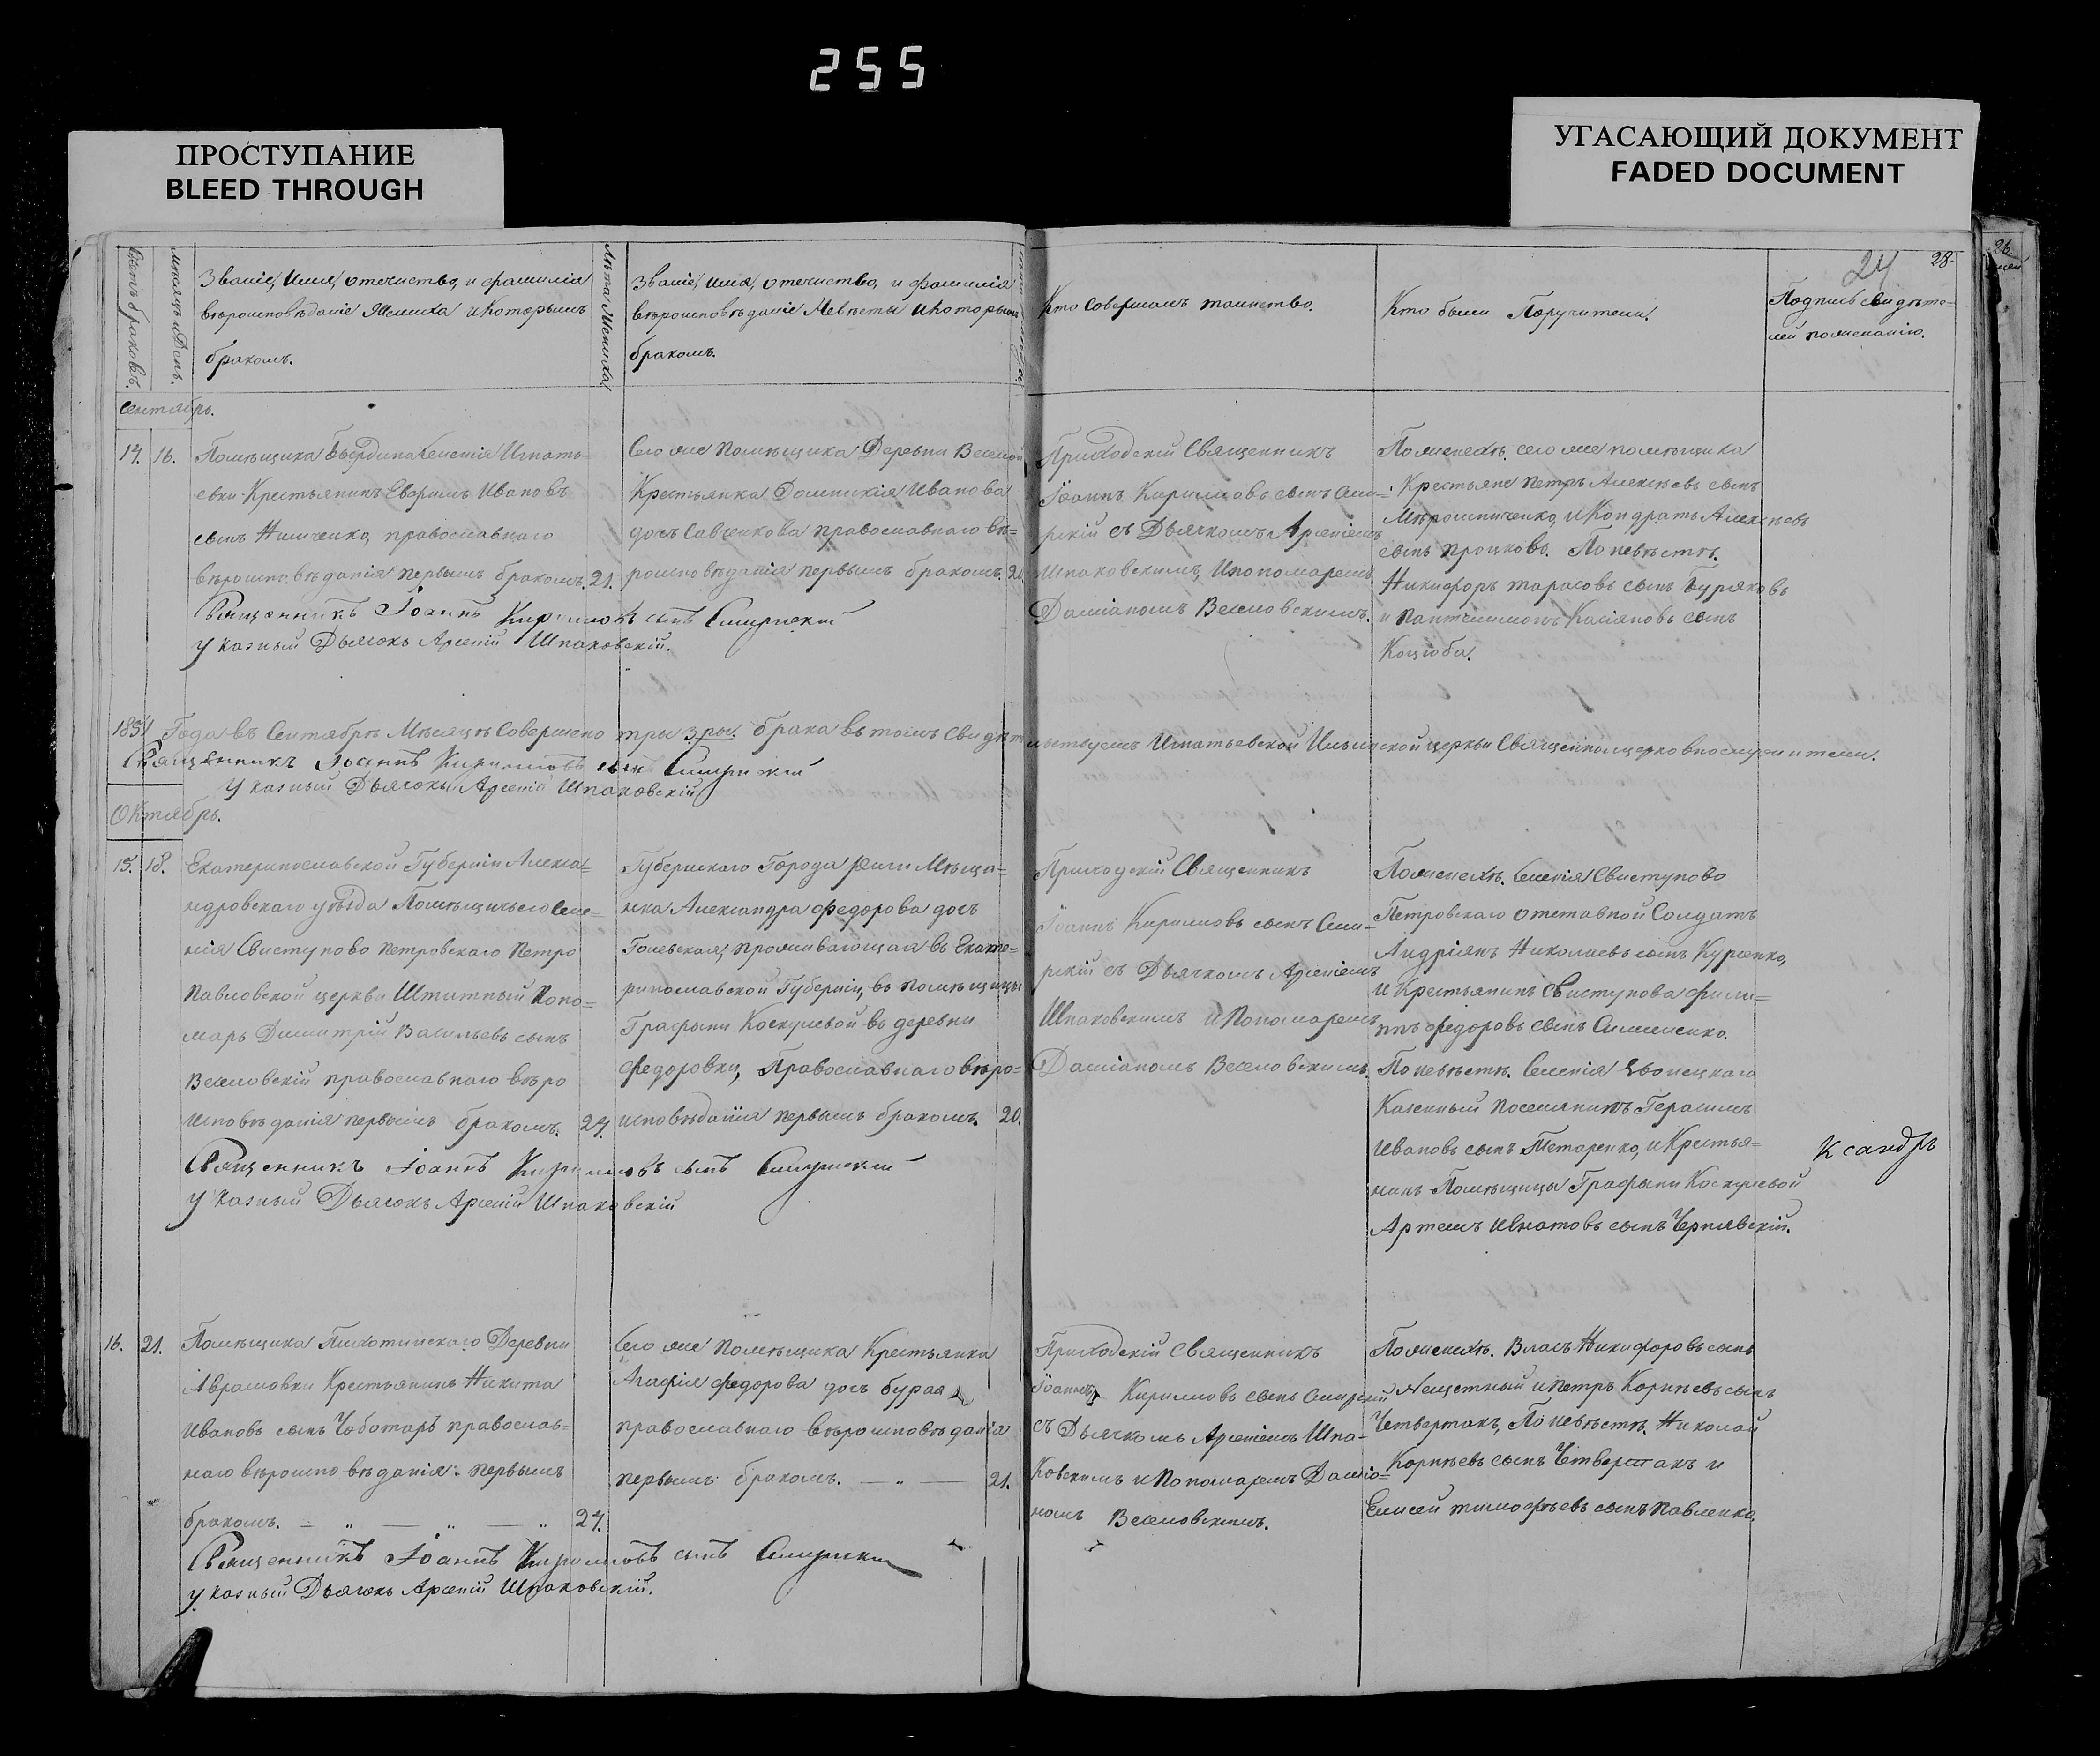 255
ПРОСТУПАНИЕ
BLEED THROUGH
УГАСАЮЩИЙ ДОКУМЕНТ
FADED DOCUMENT
24 28
26
Счетъ браковъ.
мѣсяцъ и День.
Званіе, Имя, отечиство, и фамилія
вѣроисповѣданіе Жениха и Которымъ
бракомъ.
Лѣта Жениха
Званіе, имя, отечиство, и фамилія
вѣроисповѣданіе Невѣсты и которымъ
бракомъ.
Кто Совершалъ таинство.
Кто были Поручители.
Подпись свидѣте=
лей по желанію.
Сентябрь.
14. 16. Помѣщика Селенія Игнать=
евки Крестьянинъ Ефримъ Ивановъ
сынъ Ниличенко, православнаго
вѣроисповѣданія первымъ бракомъ. 21.
Сего же Помѣщика Деревни Веселой
Крестьянка Домникія Иванова
дочь Савченкова православнаго вѣ=
роисповѣданія первымъ бракомъ. 20
Приходскій Священникъ
Іоаннъ Кириловъ сынъ Сми=
рскій съ Дьячкомъ Арсеніемъ
Шпаковскимъ, Ипономаремъ
Даміаномъ Веселовскимъ.
По женихѣ. сего же помѣщика
Крестьяне Петръ Алексѣевъ сынъ
Мирошниченко, и Кондратъ Алексѣевъ
сынъ Процковъ. По невѣстѣ.
Никифоръ тарасовъ сынъ Буряковъ
и Пантилимонъ Касіяновъ сынъ
Коцюба.
Священникъ Іоаннъ Кириловъ сынъ Смирскій
указный Дьячокъ Арсеній Шпаковскій.
1851 Года въ Сентябрѣ Мѣсяцѣ Совершено три 3. ри. брака въ томъ Свидѣтельствуемъ Игнатьевской Ильинской церкви Священноцерковнослужители.
Священникъ Іоаннъ Кириловъ сынъ Смирскій
указный Дьячокъ Арсеній Шпаковскій
Октябрь.
15. 18. Екатеринославской Губерніи Алекса=
ндровскаго уѣзда Помѣщичьяго Селе=
нія Свистуново Петровскаго Петро
Павловской церкви Штатный Поно=
марь Димитрій Васильевъ сынъ
Веселовскій православнаго вѣро
исповѣданія первымъ бракомъ. 27.
Губернскаго Города Риги Мѣща=
нка Александра Федорова дочь
Гольвская, проживающая въ Екате=
ринославской Губерніи, въ помѣщицы
Графыни Коскулевой въ деревни
Федоровки, Православнаго вѣро=
исповѣданія первымъ бракомъ. 20.
Приходскій Священникъ
Іоаннъ Кириловъ сынъ Сми=
рскій съ Дьячкомъ Арсеніемъ
Шпаковскимъ и Пономаремъ
Даміаномъ Веселовскимъ.
По женихѣ. Селенія Свистуново
Петровскаго отставной Солдатъ
Андріянъ Николаевъ сынъ Куценко,
и Крестьянинъ Свистунова фили=
ппъ федоровъ сынъ Симоненко.
По невѣстѣ. Селенія
Казенный поселянинъ Герасимъ
Ивановъ сынъ Титаренко, и Крестья=
нинъ Помѣщицы Графыни Коскулевой
Артемъ Игнатовъ сынъ Чернявскій.
Ксандръ
Священникъ Іоаннъ Кириловъ сынъ Смирскій
указный Дьячокъ Арсеній Шпаковскій
16. 21. Помѣщика Пихотинскаго Деревни
Аврамовки Крестьянинъ Никита
Ивановъ сынъ Чоботарь православ=
наго вѣроисповѣданія. Первымъ
бракомъ. — „ — „ — „ 27.
Сего же Помѣщика Крестьянка
Агафія федорова дочь бурая
православнаго вѣроисповѣданія
первымъ бракомъ. — „ — 21.
Приходскій Священникъ
Іоаннъ Кириловъ сынъ Смирскій
съ Дьячкомъ Арсеніемъ Шпа=
ковскимъ и Пономаремъ Даміа=
номъ Веселовскимъ.
По женихѣ. Власъ Никифоровъ сынъ
и Петръ Корнѣевъ сынъ
Четвертакъ, По невѣстѣ. Николай
Корнѣевъ сынъ Четвертакъ и
Елисей тимофѣевъ сынъ Павленко.
Священникъ Іоаннъ Кириловъ сынъ Смирскій
указный Дьячокъ Арсеній Шпаковскій.